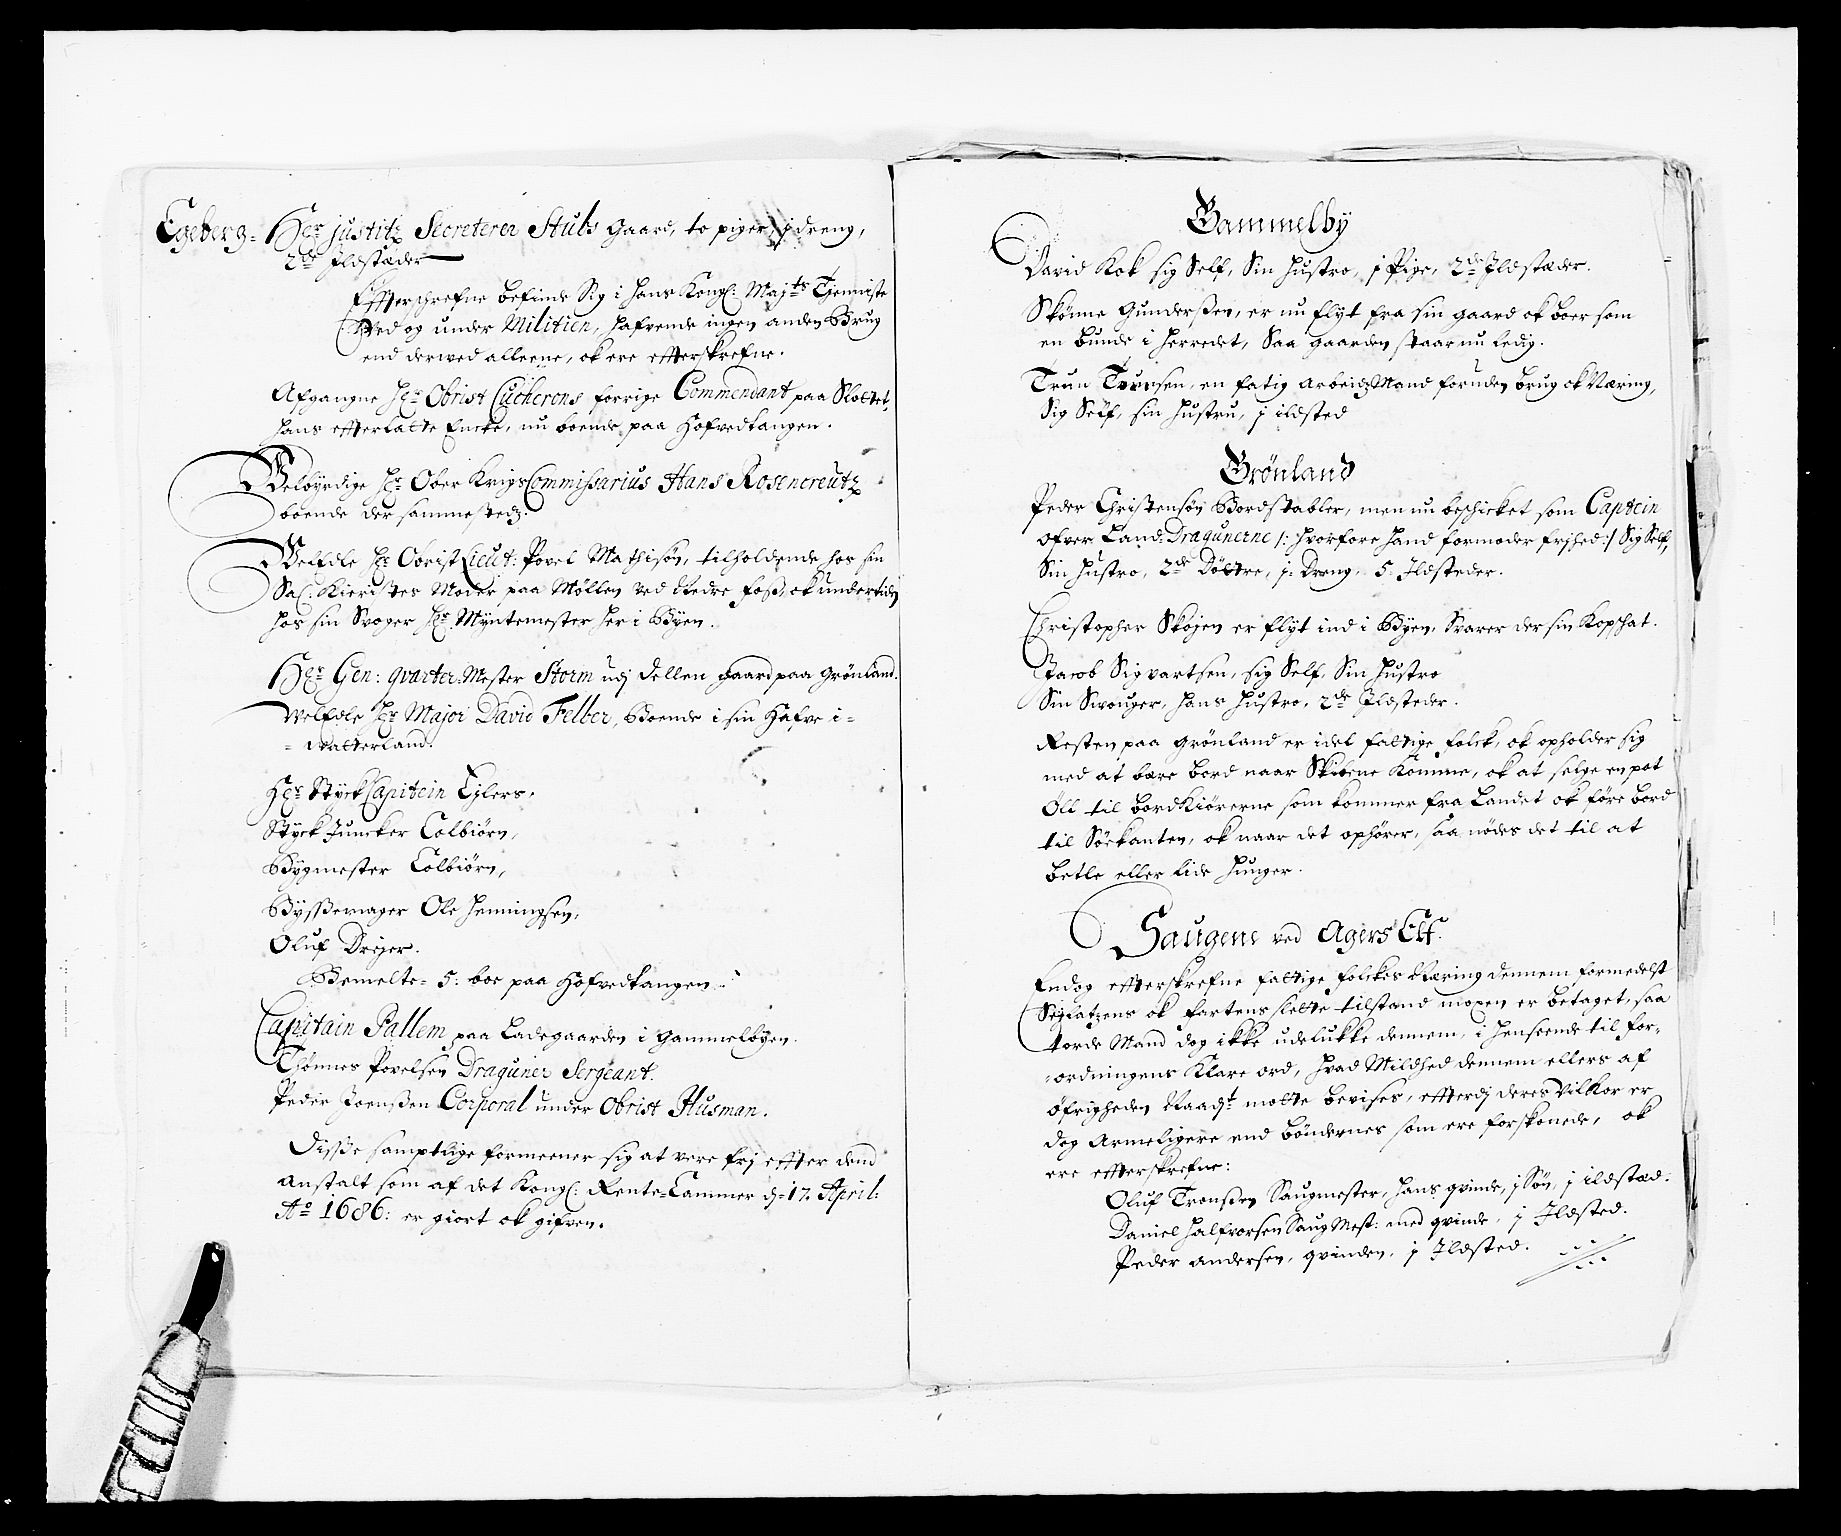 Egeberg= Hr. Justitz Secreterer Stubs Gaard, to piger, j dreng,
2de Jldstæder
Effterschrefne befinde Sig i Hans Kongl: Maj:ts Tjenniste
Ved og under Militien, hafvende ingen anden Brug
end derved alleene, ok ere effterskrefne.
Afgangne Hr. Obrist Cicherons forrige Commendant paa Slottet,
hans effterlatte Encke, nu boende paa Hofvedtangen.
Velbyrdige Hr. Ober Krigs Commissarius Hans Rosencreutz
boende der sammestedz.
Velædle Hr. Obrist Lieut: Povel Mathisøn, tilholdende hos sin
Sal: Kieristes Moder paa Møllen ved Nedre Foss, ok undertiden
hos sin Svoger Hr. Myntemester her i Byen.
Hr. Gen: qvarter Mester Storm udj Dellen gaard paa Grønland.
Welædle Hr. Major David Felber, Boende i sin Hafve i=
=watterland.
Hr. Styck Capitein Ejlers,
Styck Juncker Colbiørn,
Bygmester Colbiørn,
Bysßemager Ole Henningsen,
Oluf Drejer.
Bemelte= 5: boe paa Hofvedtangen
Capitain Pallem paa Ladegaarden i Gammelbyen.
Thønnes Povelsen Draguner Sergeant.
Peder Joenßen Corporal under Obrist Husman.
Disße samptlige formeener sig at vere frj effter dend
Anstalt som af det Kongl: Rente=Cammer d: 17 April:
Ao 1686: er giort ok gifven.
Gammelby
David Kok sig Self, Sin Hustro, j Pige, 2de Jldstæder.
Skønne Gunderßen, er nu flyt fra sin gaard ok boer som
en bunde i Herredet, Saa gaarden staar nu ledig.
Trun Tronsen, en fatig arbeidz Mand foruden brug ok Næring,
Sig Self, sin Hustru, j ildsted
Grønland
Peder Christensøn Bordstabler, men nu beschicket som Captein
ofver Land Dragunerne /: hvorfore hand formoder frjhed :/ Sig Self,
Sin Hustro, 2de Døttre, j. Dreng, 5. Jldsteder.
Christopher Skøjen er flyt ind i Byen, Svarer der sin Kopschat.
Jacob Sigvartsen, sig Self, Sin Hustro
Sin Swouger, hans Hustro, 2de Jldsteder.
Resten paa Grønland er idel fattige folck, ok opholder sig
med at bære bord naar Skibene komme, ok at selge en pot
Øll til bordkiørerne som kommer fra Landet ok føre bord
til Søekanten, ok naar det ophører, saa nødes det til at
betle eller lide Hunger.
Saugene ved Agers Elf.
Endog effterskrefne fattige folckes Næring dennem formedelst
ok fartens slette tilstand moxen er betaget, saa
torde Mand dog ikke udelukke dennem, i henseende til for=
=ordningens klare ord, hvad Mildhed dennem ellers af
øfrigheden Naadt motte bevises, efterdj deres Vilkor er
dog armeligere end bøndernes som ere forskonede, ok
ere effterskrefne:
Oluf Tronßen Saugmester, hans qvinde, j Søn, j ildstæd.
Daniel Halfvorsen Saug Mest: med qvinde, j Jldsted.
Peder andersen, qvinden, j Jldsted.